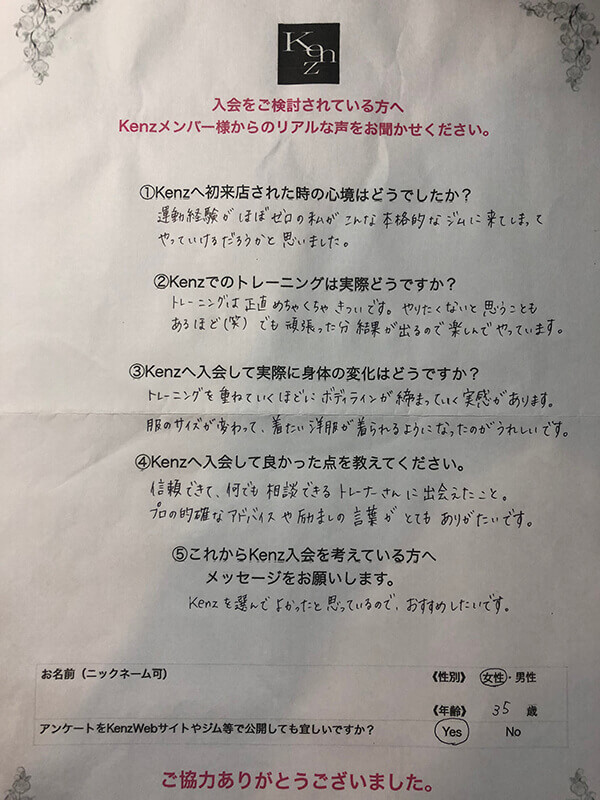 Kenz
入会をご検討されている方へ
Kenzメンバー様からのリアルな声をお聞かせください。
①Kenzへ初来店された時の心境はどうでしたか？
運動経験がほぼゼロの私がこんな本格的なジムに来てしまって
やっていけるだろうかと思いました。
②Kenzでのトレーニングは実際どうですか？
トレーニングは正直めちゃくちゃきついです。やりたくないと思うことも
あるほど(笑) でも頑張った分結果が出るので楽しんでやっています。
③Kenzへ入会して実際に身体の変化はどうですか？
トレーニングを重ねていくほどにボディラインが締まっていく実感があります。
服のサイズが変わって、着たい洋服が着られるようになったのがうれしいです。
④Kenzへ入会して良かった点を教えてください。
信頼できて、何でも相談できるトレーナーさんに出会えたこと。
プロの的確なアドバイスや励ましの言葉がとてもありがたいです。
⑤これからKenz入会を考えている方へ
メッセージをお願いします。
Kenzを選んでよかったと思っているので、おすすめしたいです。
お名前（ニックネーム可） 《性別》 女性・男性
《年齢》 35 歳
アンケートをKenzWebサイトやジム等で公開しても宜しいですか？ Yes No
ご協力ありがとうございました。